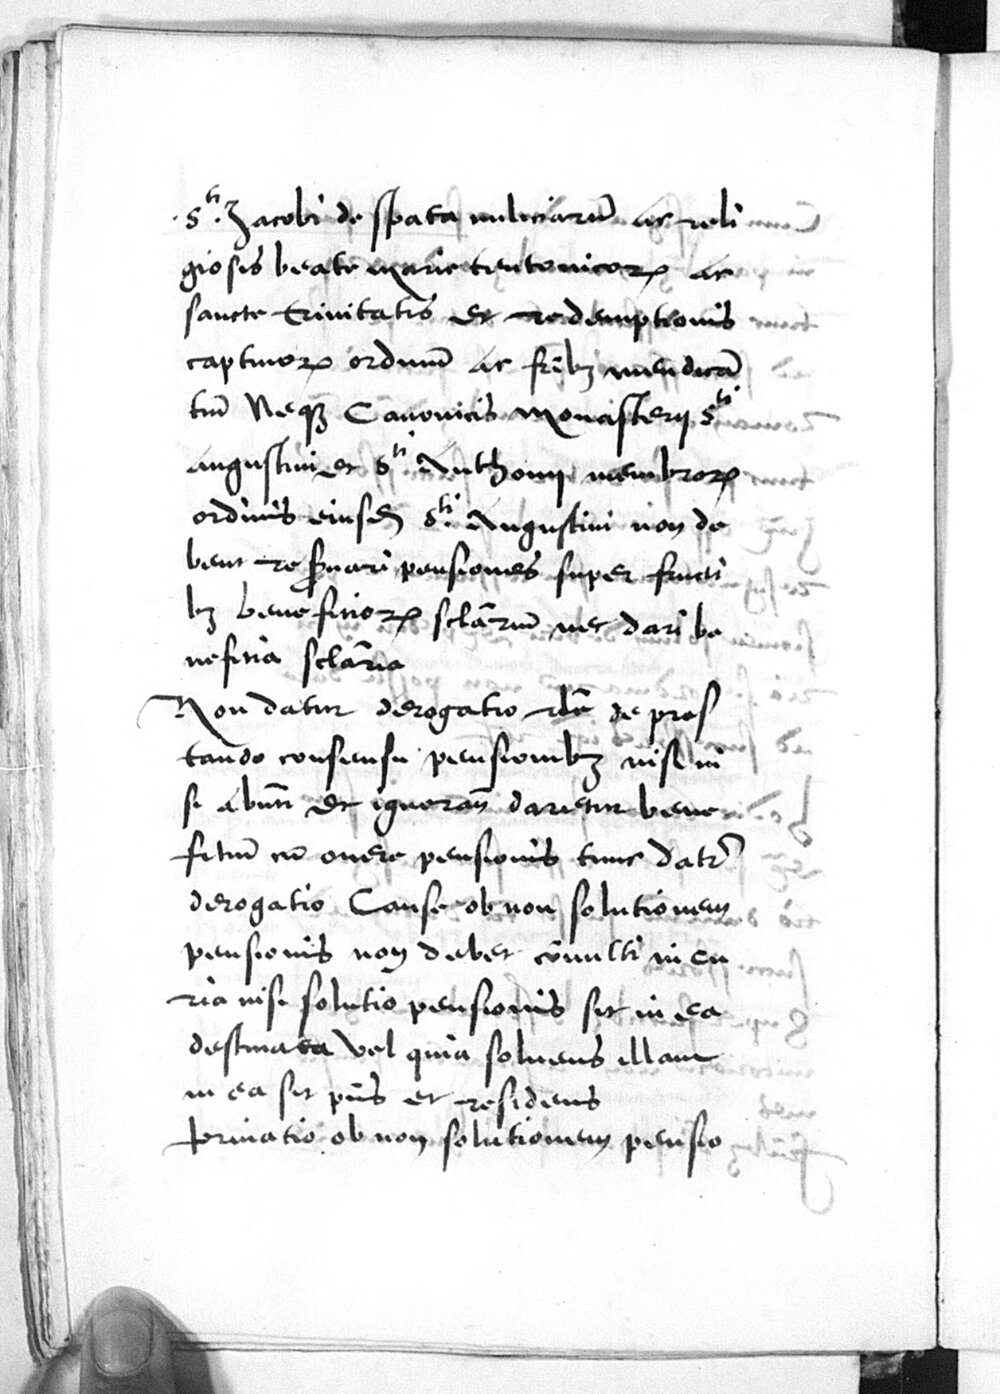 S.ti Jacobi de spata miliciarũ ac reli
giosis beate marie teutonicoꝝ ac
sancte trinitatis et redemptionis
captivoꝝ ordinũ ac fribꝫ mendicã
tiũ Neqꝫ Canonicis monasterij S.ti
augustini et S.ti Anthonij membroꝝ
ordinis eiusdẽ S.ti Augustini non de
bent reservari pensiones super fructi
bꝫ beneficioꝝ sclãriũ nec dari be
neficia sclãria
Non datur derogatio rle de pres
tando consensu pensionibꝫ nisi in
si abñti et ignorãti daretur bene
ficiũ cũ onere pensionis tunc datr
derogatio Cause ob non solutionem
pensionis non debet cõmitti in cu
ria nisi solutio pensionis sit in ea
destinata vel quia solvens illam
in ea sit pñs et residens
privatio ob non solutionem pensio